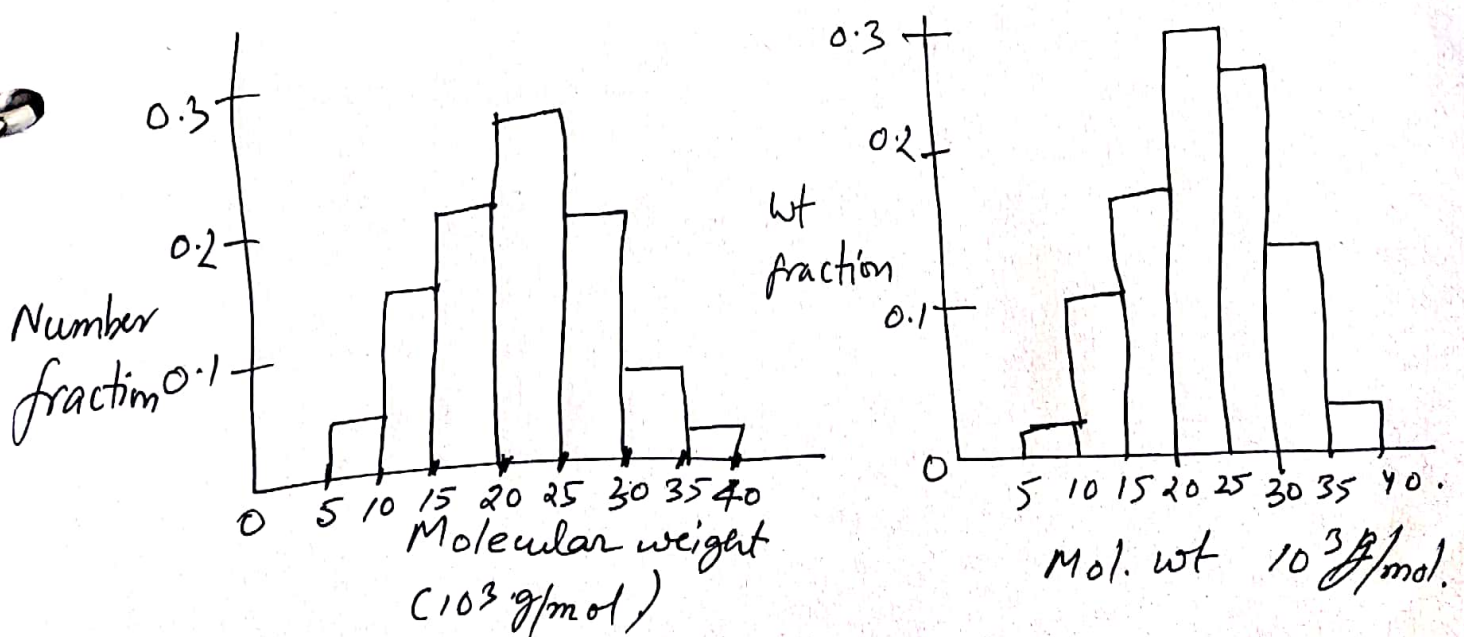 0.3
0.2
Number
fraction 0.1
0 5 10 15 20 25 30 35 40
Molecular weight
(10³ g/mol)
0.3
0.2
wt
fraction
0.1
0
5 10 15 20 25 30 35 40.
Mol. wt 10³ g/mol.